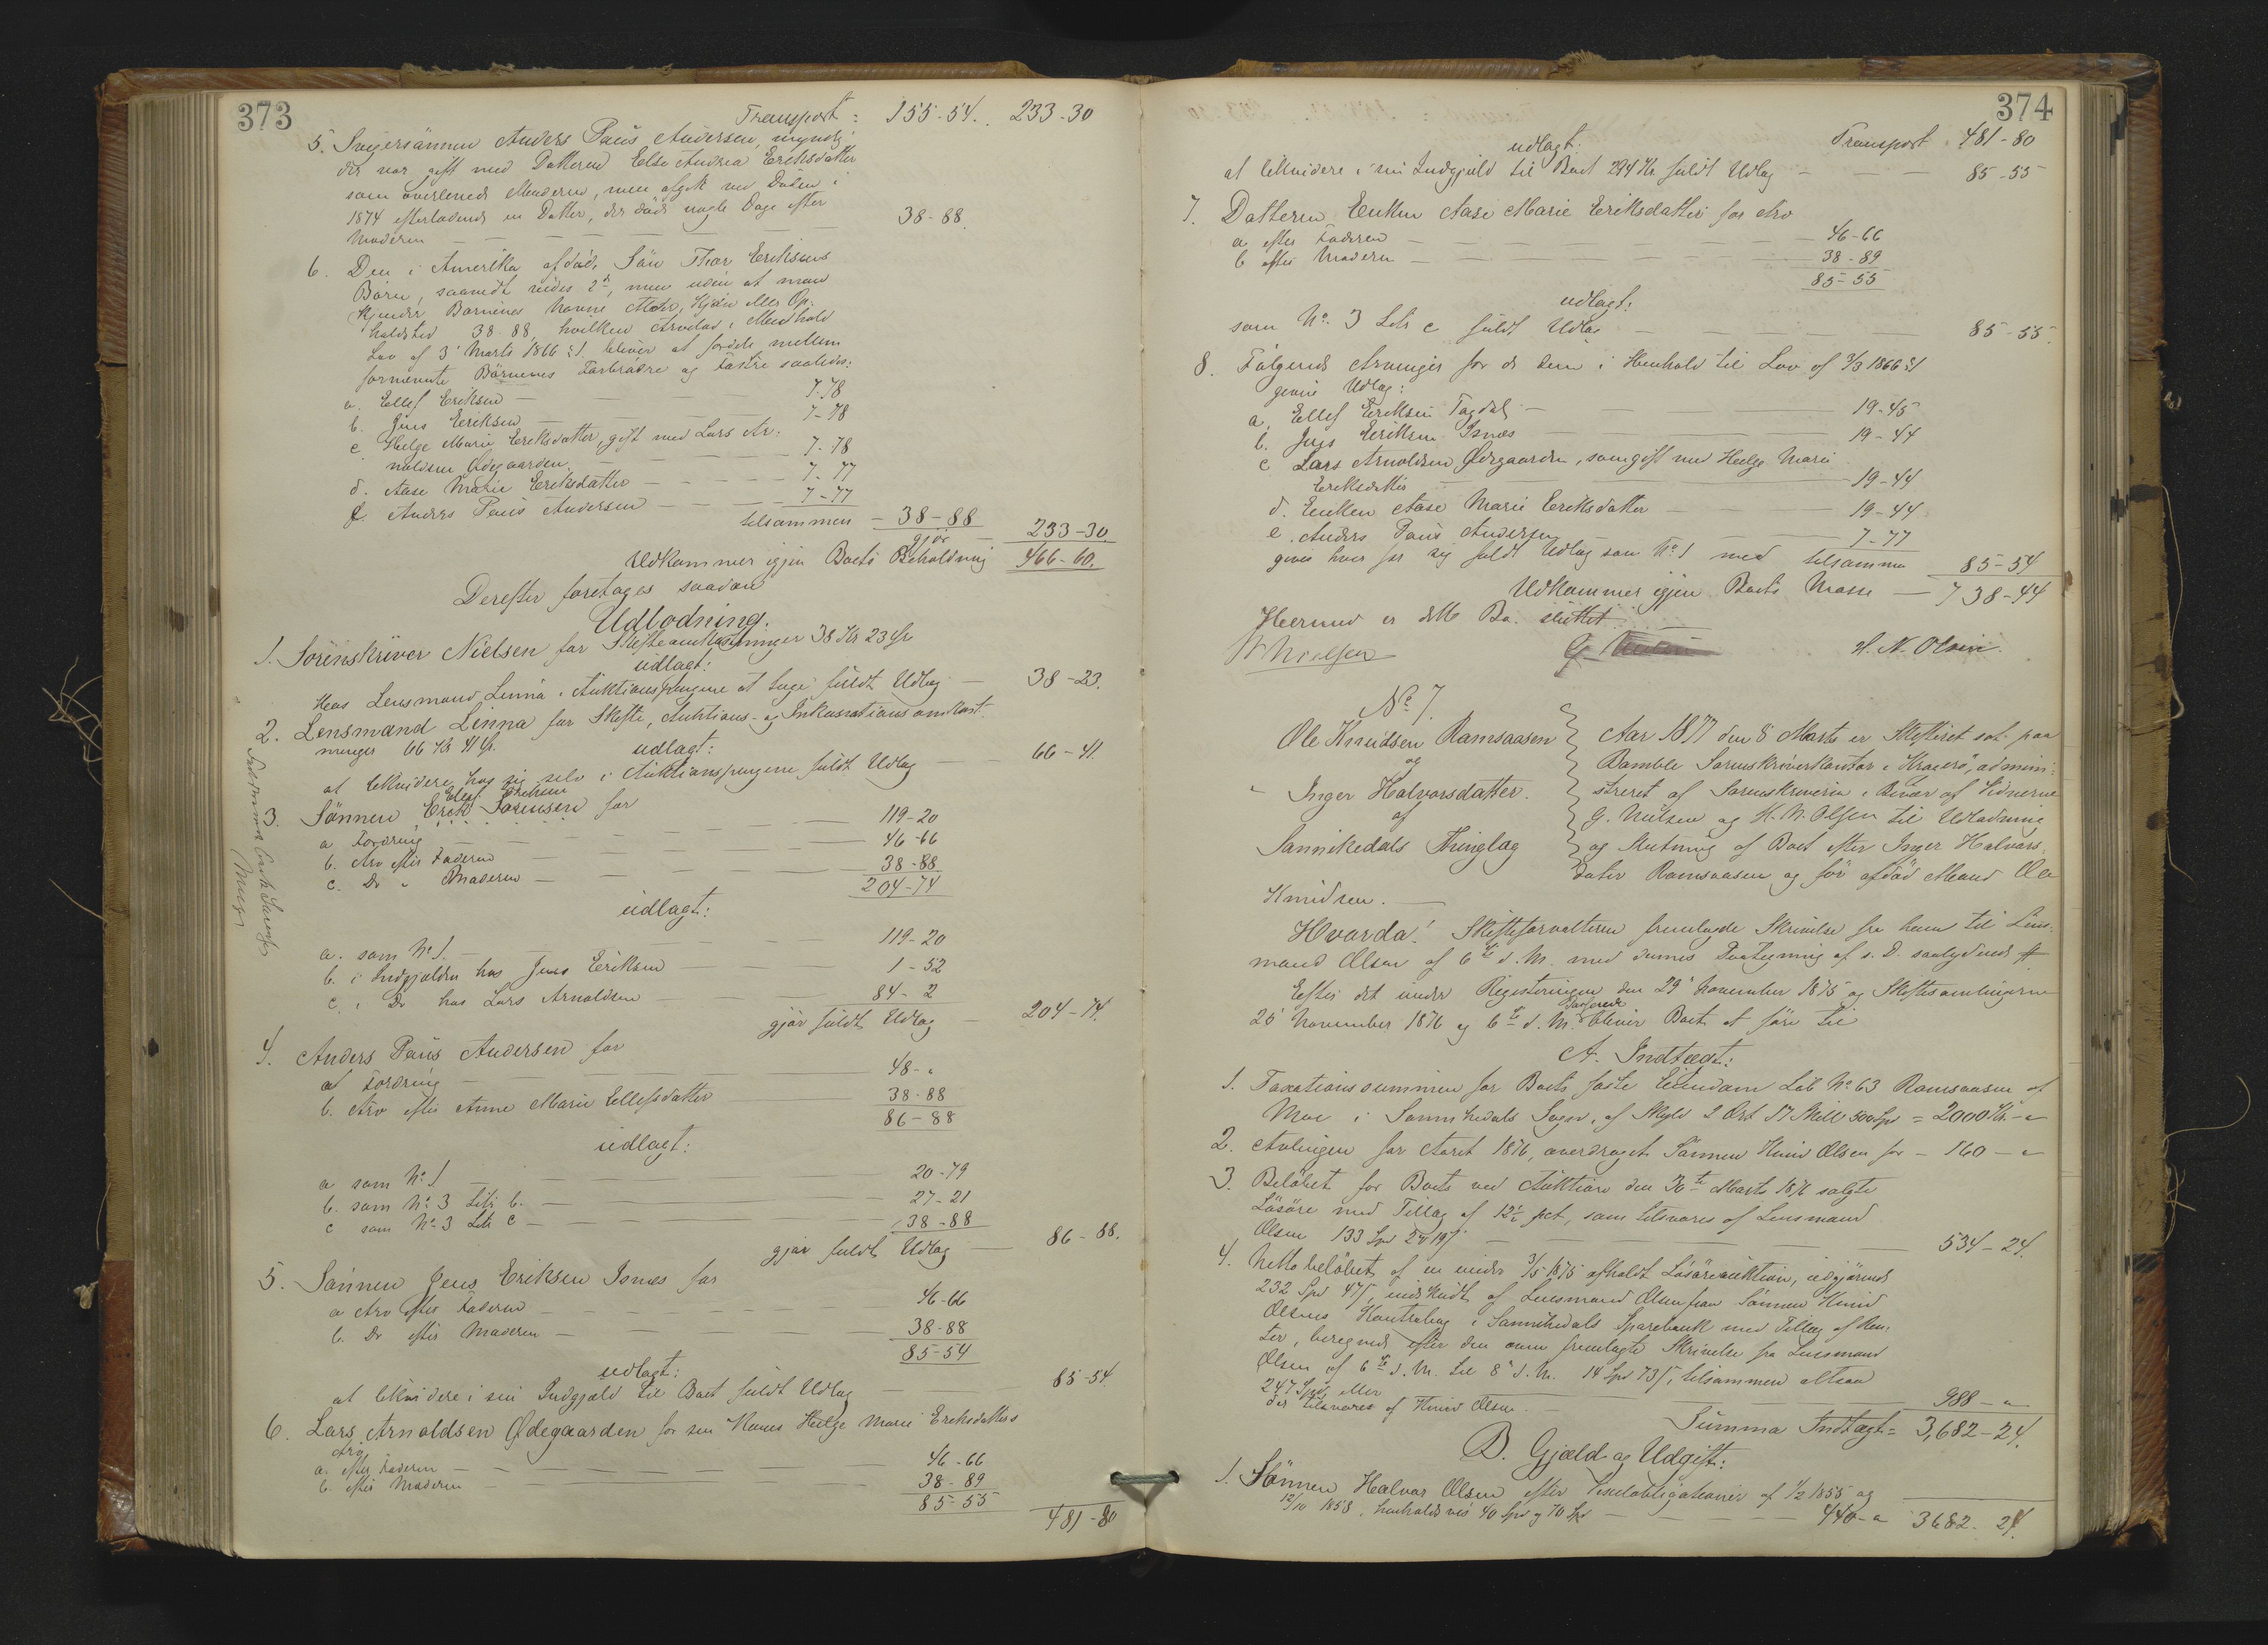 373
Transport: 155-54. 233-30
5. Svigersönnen Anders Paüs Andersen, myndig
der var gift med Datteren Else Andrea Eriksdatter
som overlevede Moderen, men afgik ved Döden i
1874 efterladende en Datter, der döde nogle Dage efter
Moderen — 38-88.
6. Den i Amerika afdöde Sön Thor Eriksens
Börn, saavidt vides 2de, men uden at man
kjender Börnenes Navne Alder, Kjön eller Op-
holdssted 38-88, hvilken Arvelod i Medhold
Lov af 3 Marts 1866 § 1 bliver at fordele mellem
fornævnte Börnenes Farbrødre og Fastre saaledes:
a. Ellef Eriksen — 7-78
b. Jens Eriksen — 7-78
c Helge Marie Eriksdatter, gift med Lars Ar-
noldsen Ødegaarden — 7-78
d. Aase Marie Eriksdatter — 7-77
e. Anders Paüs Andersen — 7-77
tilsammen — 38-88
gjör — 233-30.
Udkommer igjen Boets Beholdning 466-60.
Derefter foretages saadan
Udlodning.
1. Sorenskriver Nielsen for Skifteomkostninger 38 Kr 23 Ör
udlagt:
Hos Lensmand Linna i Auktionspengene at tage fuldt Udlæg — 38-23.
2. Lensmand Linna for Skifte, Auktions- og Inkassationsomkost-
ninger 66 Kr 41 Ör.
udlagt:
at likvidere hos sig selv i Auktionspengene fuldt Udlæg — 66-41.
Ellef Eriksen
3. Sönnen Erik Sörensen for
a Fordring — 119-20
b. Arv efter Faderen — 46-66
c. Do " Moderen — 38-88
204-74
udlagt:
a. som No 1. — 119-20
b. i Indgjælden hos Jens Eriksen — 1-52
c. i Do hos Lars Arnoldsen — 84-2
gjör fuldt Udlæg — 204-74.
4. Anders Paüs Andersen for
a Fordring — 48-"
b. Arv efter Anne Marie Ellefsdatter — 38-88
86-88
udlagt:
a som No 1 — 20-79
b. som No 3 Litr b. — 27-21
c som No 3 Litr c — 38-88
gjör fuldt Udlæg — 86-88.
5. Sönnen Jens Eriksen Isnæs for
a Arv efter Faderen — 46-66
b. Do efter Moderen — 38-88
85-54
udlagt:
at likvidere i sin Indgjæld til Boet fuldt Udlæg — 85-54
6. Lars Arnoldsen Ødegaarden for sin Kones Helge Marie Eriksdatters
Arv
a. efter Faderen — 46-66
b. efter Moderen — 38-89
85-55
481-80
374
Transport 481-80
udlagt:
at likvidere i sin Indgjæld til Boet 294 Kr fuldt Udlæg — 85-55
7. Datteren Enken Aase Marie Eriksdatter for Arv
a efter Faderen — 46-66
b efter Moderen — 38-89
85-55
udlagt:
som No 3 Litr c fuldt Udlæg — 85-55.
8. Fölgende Arvinger for de dem i Henhold til Lov af 3/3 1866 § 1
givne Udlæg:
a. Ellef Eriksen Tagdal — 19-45
b. Jens Eriksen Isnæs — 19-44
c Lars Arnoldsen Ødegaarden, som gift med Helge Marie
Eriksdatter — 19-44
d. Enken Aase Marie Eriksdatter — 19-44
e. Anders Paüs Andersen — 7-77
gives hver for sig fuldt Udlæg som No 1 med tilsammen 85-54
Udkommer igjen Boets Masse — 738-44
Hermed er dette Bo sluttet.
Nielsen
H. N. Olsen.
No 7.
Ole Knudsen Ramsaasen
og
Inger Halvorsdatter.
af
Sannikedals Thinglag
Aar 1877 den 8 Marts er Skifteret sat paa
Bamble Sorenskriverkontor i Kragerö, admini-
streret af Sorenskriveren i Overvær af Vidnerne
G. Nielsen og H. N. Olsen til Udlodning
og Slutning af Boet efter Inger Halvors-
datter Ramsaasen og för afdöd Mand Ole
Knudsen. —
Hvorda! Skifteforvalteren fremlagde Skrivelse fra ham til Lens-
mand Olsen af 6te d. M. med dennes Paategning af s. D. saalydende #
Efter det under Registeringen den 29 November 1875 og Skiftesamlingerne
25 November 1876 og 6te d. M. Passerede bliver Boet at före til
A. Indtægt:
1. Taxationssummen for Boets faste Eiendom Löb No 63 Ramsaasen af
Moe i Sannikedals Sogn, af Skyld 2 Ort 17 Skill 500 Spd = 2000 Kr. "
2. Avlingen for Aaret 1876, overdraget Sönnen Knud Olsen for — 160 — "
3. Belöbet for Boets ved Auktion den 30te Marts 1876 solgte
Lösöre med Tillæg af 12½ pct., som tilsvares af Lensmand
Olsen 133 Spd 2 ort 19 s — 534-24.
4. Nettobelöbet af en under 3/5 1875 afholdt Lösöreauktion, udgjörende
232 Spd 47 s, indskudt af Lensmand Olsen paa Sönnen Knud
Olsens Kontrabog i Sannikedals Sparebank med Tillæg af Ren-
ter, beregnede efter den ovenfremlagte Skrivelse fra Lensmand
Olsen af 6te d. M. til 8 d. M. 14 Spd 73 s, tilsammen altsaa
247 Spd, eller
der tilsvares af Knud Olsen. — 988 — "
Summa Indtægt = 3,682-24.
B. Gjæld og Udgift:
1. Sönnen Halvor Olsen efter Gjeldsobligationer af 1/2 1855 og
12/10 1858, henholdsvis 40 Spd og 70 Spd — 440 — " 3682-24.